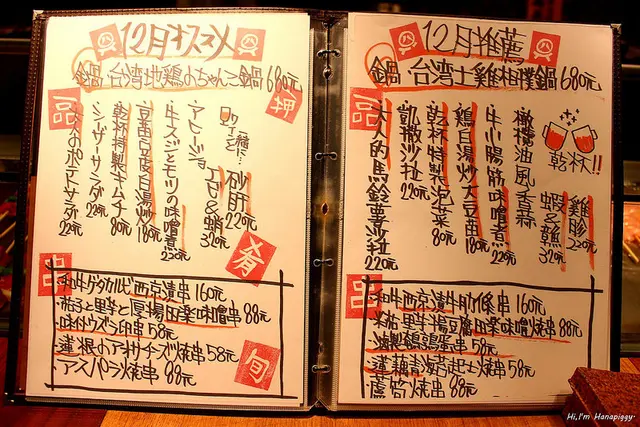 12月オススメ
鍋・台湾地鶏のちゃんこ鍋 680元
押
品
ワインと一緒に…
砂肝 220元
アヒージョ
エビ&蛸 320元
牛スジとモツの味噌煮 220元
豆苗
白湯炒 180元
・乾杯特製キムチ 80元
・シーザーサラダ 220元
・大人のポテトサラダ 220元
肴
串
・和牛ゲタカルビ西京漬串 160元
と里芋と厚揚田楽味噌串 88元
58元
・蓮根の
焼串 58元
・アスパラ焼串 88元
旬
12月推薦
鍋・台湾土雞相撲鍋 680元
品
乾杯!!
雞胗 220元
蝦&
320元
・橄欖油風香蒜
・牛小腸筋味噌煮 220元
・雞白湯炒大豆苗 180元
・乾杯特製泡菜 80元
・凱撒沙拉 220元
・大人的馬鈴薯沙拉 220元
串
・和牛西京漬牛肋條串 160元
里芋揚豆腐田楽味噌燒串 88元
蛋串 58元
・蓮藕青海苔起士燒串 58元
・蘆筍燒串 88元
Hi,I'm Hanapiggy.